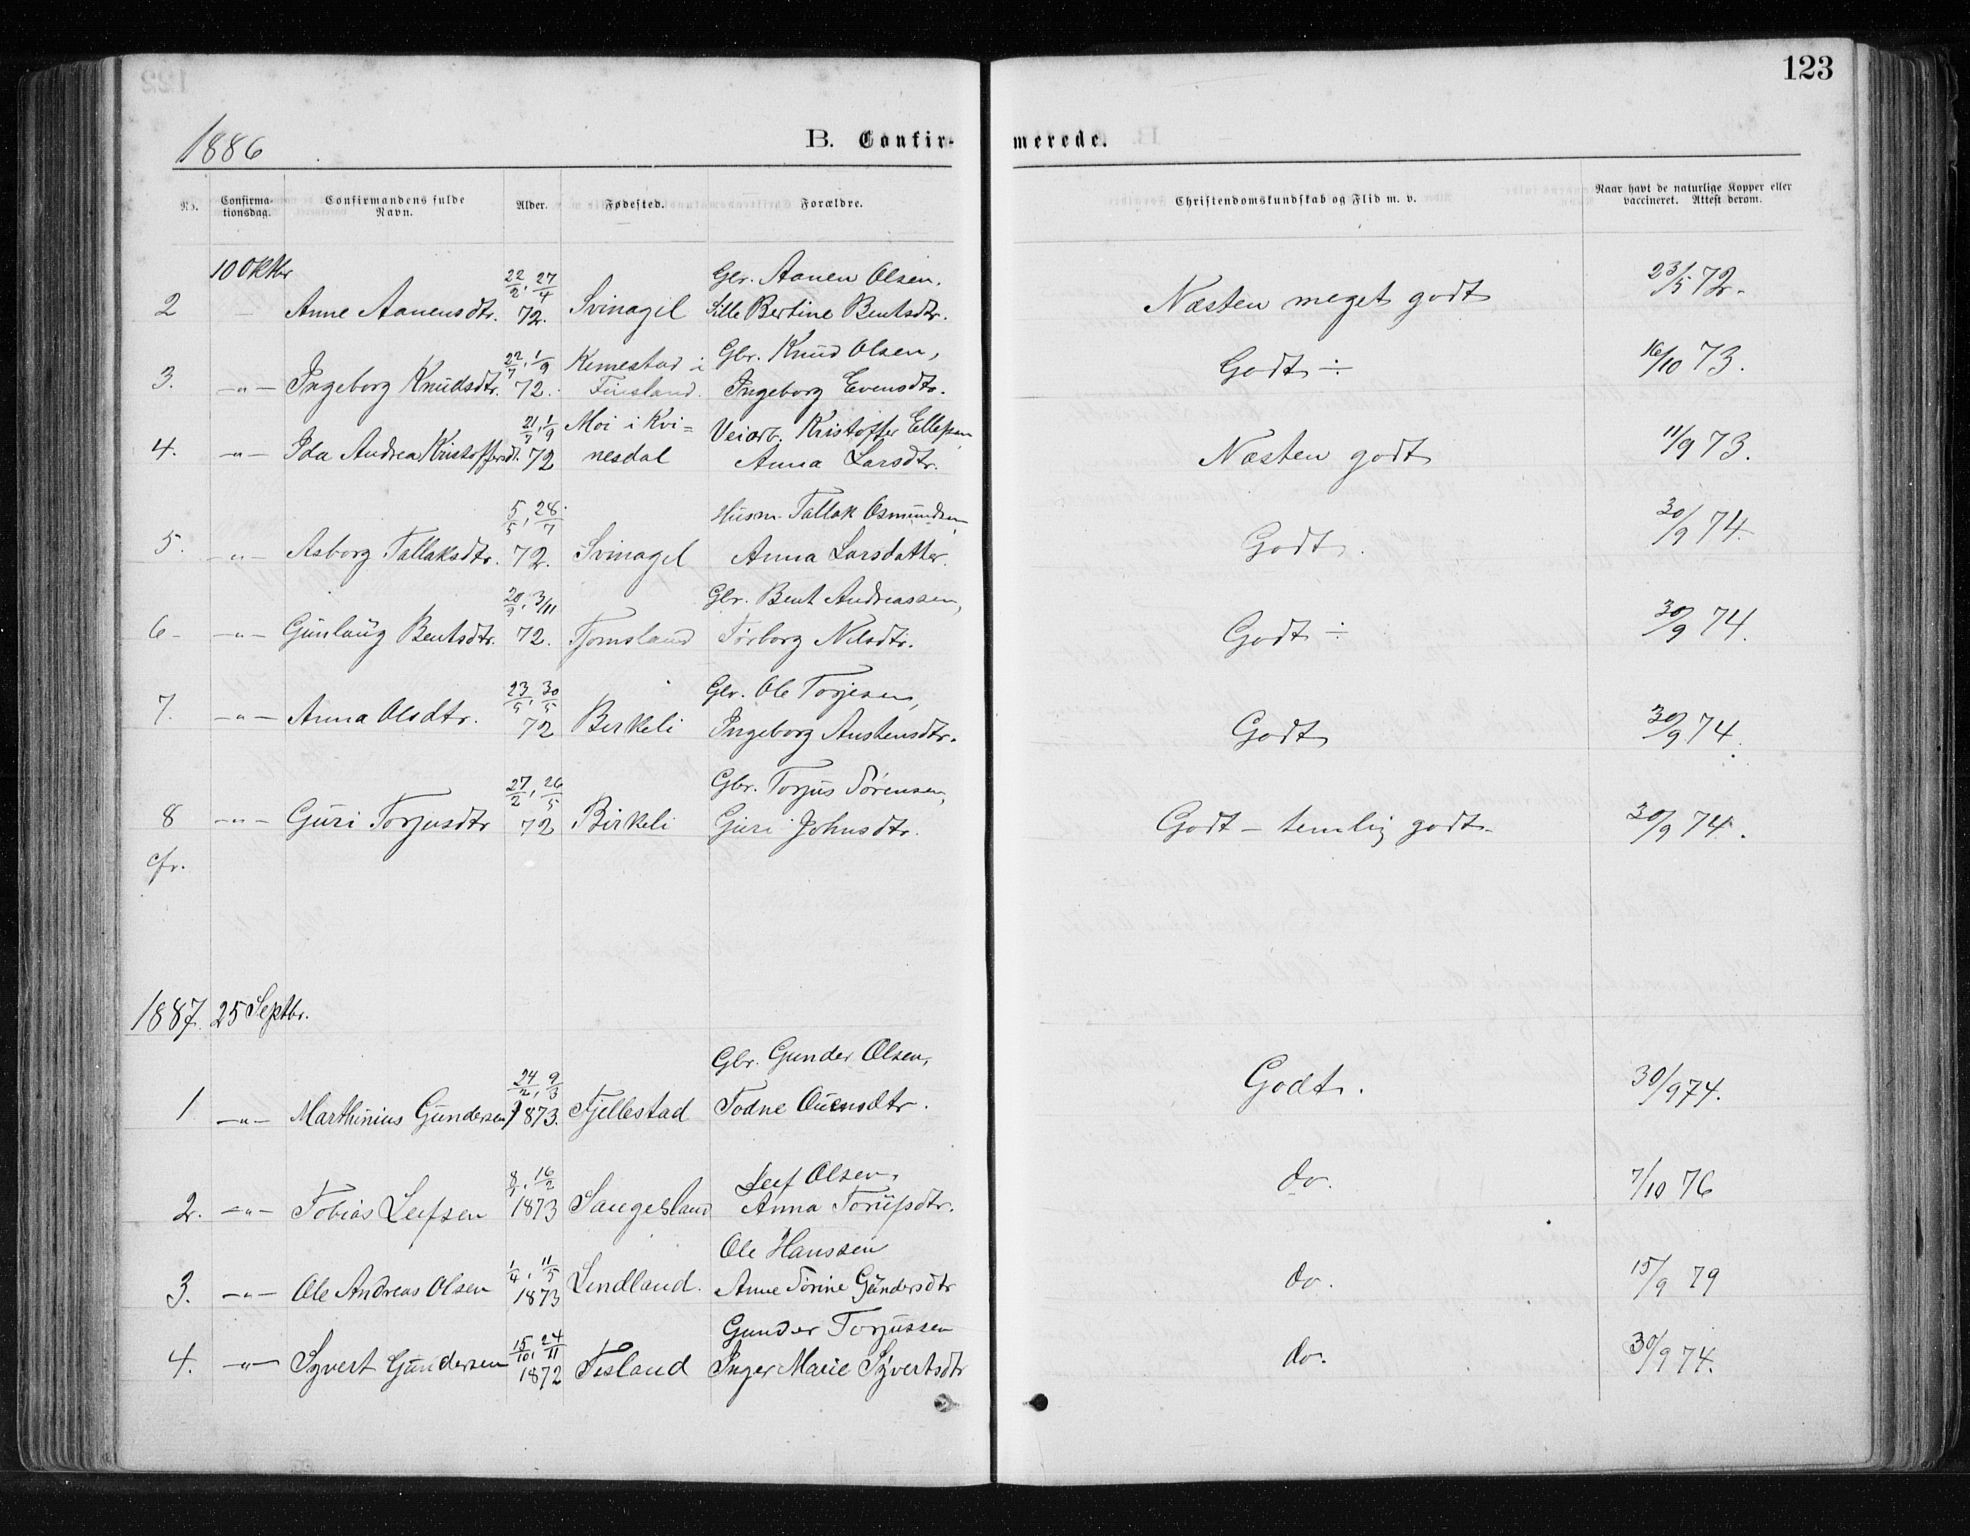 123
1886
B. Confir- merede.
No. Confirma- tionsdag. Confirmandens fulde Navn. Alder. Fødested. Forældre. Christendomskundskab og Flid m. v. Naar havt de naturlige Kopper eller vaccineret. Attest derom.
10 Oktbr 22/2, 27/4 Gbr. Aanen Olsen, 23/5 72.
2 Anne Aanensdtr. 72. Svinagel Sille Bertine Bentsdtr. Næsten meget godt
22/7, 1/9 Kemestad i Gbr. Knud Olsen, 16/10 73.
3. -"- Ingeborg Knudsdtr. 72. Finsland. Ingeborg Evensdtr. Godt ÷
21/7, 1/9 Moi i Kvi= Veiarb. Kristoffer Ellefsen 11/9 73.
4. -"- Ida Andrea Kristoffersdt. 72 nesdal Anna Larsdtr. Næsten godt
5/5, 28/7 Husm. Tallak Osmundsen 30/9 74.
5. -"- Asborg Tallaksdtr. 72. Svinagel Anna Larsdatter. Godt.
20/9, 3/11 Gbr. Bent Andreassen, 30/9 74.
6- -"- Gunlaug Bentsdtr. 72. Tjomsland Torborg Nilsdtr. Godt ÷
23/5, 30/5 Gbr. Ole Torjesen,
7. -"- Anna Olsdtr. 72 Birkeli Ingeborg Austensdtr. Godt 30/9 74.
27/2, 26/5 Gbr. Torjus Sørensen,
8 -"- Guri Torjusdtr 72 Birkeli Guri Johnsdtr. Godt - temlig godt. 30/9 74.
cfr.
1887. 25 Septbr.
24/2, 9/3 Gbr. Gunder Olsen,
1 -"- Marthinius Gundersen 1873. Fjellestad Todne Ouensdtr. Godt. 30/9 74.
8/1, 16/2 Leif Olsen,
2. -"- Tobias Leifsen 1873 Saugesland Anna Torüpsdtr. do. 7/10 76
1/4, 11/5 Ole Hanssen
3. -"- Ole Andreas Olsen 1873 Lindland. Anne Torine Gundersdtr do. 15/9 79
15/10, 24/11 Gunder Torjussen
4. -"- Syvert Gundersen 1872 Fesland Inger Marie Syvertsdtr do. 30/9 74.